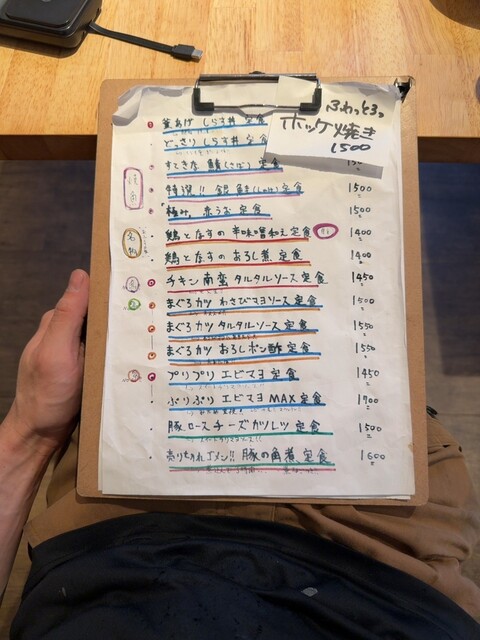 ふわっとろっ
ホッケ焼き
1500
釜あげ しらす丼 定食
どっさり しらす丼 定食
すてきな 鯖(さば) 定食
特選!! 銀鮭(しゃけ)定食 1500
極み 赤うお 定食 1500
鶏となすの 辛味噌和え定食 1400
名物
鶏となすの おろし煮 定食 1400
チキン南蛮 タルタルソース 定食 1450
まぐろカツ わさびマヨソース 定食 1500
まぐろカツ タルタルソース 定食 1550
まぐろカツ おろしポン酢 定食 1550
プリプリ エビマヨ 定食 1450
ぷりぷり エビマヨ MAX 定食 1700
豚ロースチーズカツレツ 定食 1500
売りきれゴメン!! 豚の角煮 定食 1600